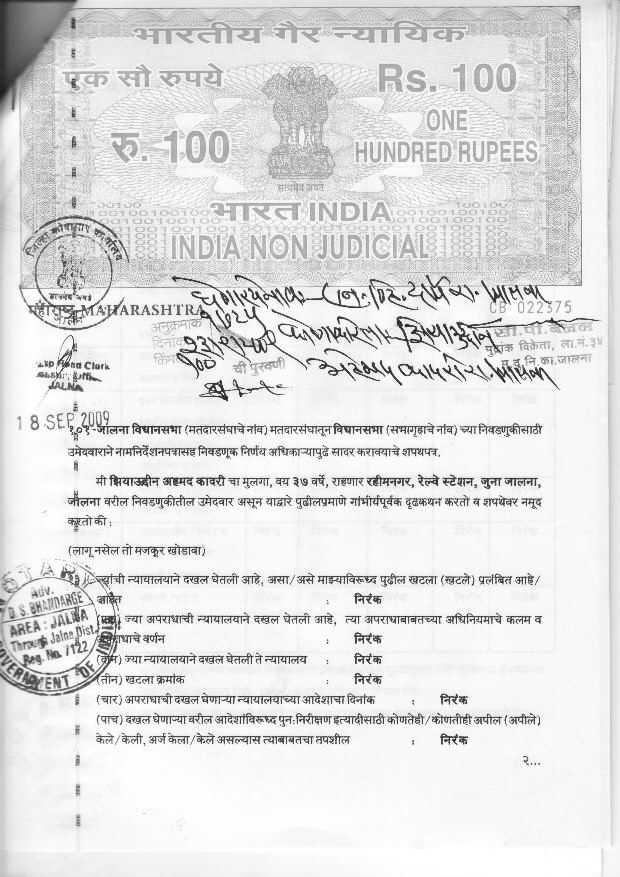 भारतीय गैर न्यायिक
एक सौ रुपये
Rs. 100
रु. 100
ONE
HUNDRED RUPEES
सत्यमेव जयते
भारत INDIA
INDIA NON JUDICIAL
महाराष्ट्र MAHARASHTRA
CB 022375
अनुक्रमांक
दिनांक
किंमत
मुद्रांक विक्रेता, ला.नं. ३४
JALNA
18 SEP 2009
१०१-जालना विधानसभा (मतदारसंघाचे नांव) मतदारसंघातून विधानसभा (सभागृहाचे नांव) च्या निवडणुकीसाठी
उमेदवाराने नामनिर्देशनपत्रासह निवडणूक निर्णय अधिकाऱ्यापुढे सादर करावयाचे शपथपत्र.
मी झियाउद्दीन अहमद कादरी चा मुलगा, वय ३७ वर्षे, राहणार रहीमनगर, रेल्वे स्टेशन, जुना जालना,
जालना वरील निवडणुकीतील उमेदवार असून याद्वारे पुढीलप्रमाणे गांभीर्यपूर्वक दृढकथन करतो व शपथेवर नमूद
करतो की :
(लागू नसेल तो मजकूर खोडावा)
ज्यांची न्यायालयाने दखल घेतली आहे, असा/असे माझ्याविरूध्द पुढील खटला (खटले) प्रलंबित आहे/
आहेत : निरंक
ज्या अपराधाची न्यायालयाने दखल घेतली आहे, त्या अपराधाबाबतच्या अधिनियमाचे कलम व
अपराधाचे वर्णन : निरंक
(तीन) ज्या न्यायालयाने दखल घेतली ते न्यायालय : निरंक
(तीन) खटला क्रमांक : निरंक
(चार) अपराधाची दखल घेणाऱ्या न्यायालयाच्या आदेशाचा दिनांक : निरंक
(पाच) दखल घेणाऱ्या वरील आदेशांविरूध्द पुन:निरीक्षण इत्यादीसाठी कोणतेही/कोणतीही अपील (अपीले)
केले/केली, अर्ज केला/केले असल्यास त्याबाबतचा तपशील : निरंक
२...
NOTARY
Adv.
D.S. BHANDARGE
AREA : JALNA
Through Jalna Dist.
Reg. No. 7122
GOVERNMENT OF INDIA